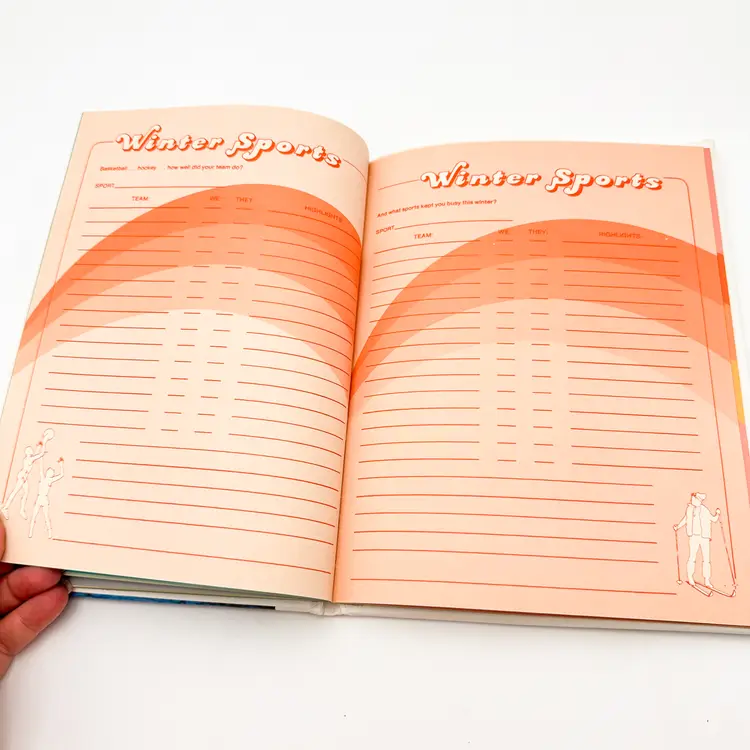 Winter Sports
Basketball... hockey... how well did your team do?
SPORT
TEAM: WE: THEY: HIGHLIGHTS:
Winter Sports
And what sports kept you busy this winter?
SPORT
TEAM: WE: THEY: HIGHLIGHTS: